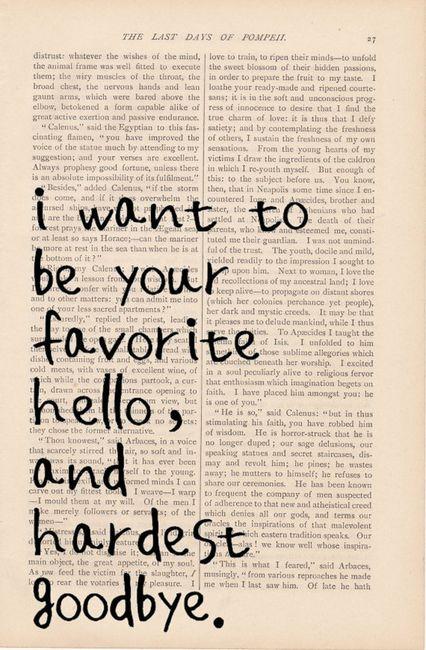 THE LAST DAYS OF POMPEII.
27
distrust: whatever the wishes of the mind,
the animal frame was well fitted to execute
them; the wiry muscles of the throat, the
broad chest, the nervous hands and lean
gaunt arms, which were bared above the
elbow, betokened a form capable alike of
great active exertion and passive endurance.
"Calenus," said the Egyptian to this fas-
cinating flamen, "you have improved the
voice of the statue much by attending to my
suggestion; and your verses are excellent.
Always prophesy good fortune, unless there
is an absolute impossibility of its fulfilment."
"Besides," added Calenus, "if the storm
or at least so says Horace;—can the mariner
more at rest in the sea than when he is at
bottom of it?"
and to other matters: you can admit me into
one of your less sacred apartments?"
replied the priest,
cold meats, with vases of excellent wine, of
which while the companions partook, a cur-
they chose the former alternative.
"Thou knowest," said Arbaces, in a voice
that scarcely stirred the air, so soft and in-
—I mould them at my will. Of the men I
make merely followers or servants; of the
main object, the great appetite, of my soul.
As you feed the victim for the slaughter, I
rear the votaries pleasure. I
love to train, to ripen their minds—to unfold
the sweet blossom of their hidden passions,
in order to prepare the fruit to my taste. I
loathe your ready-made and ripened courte-
sans; it is in the soft and unconscious prog-
ress of innocence to desire that I find the
true charm of love: it is thus that I defy
satiety; and by contemplating the freshness
of others, I sustain the freshness of my own
sensations. From the young hearts of my
victims I draw the ingredients of the caldron
in which I re-youth myself. But enough of
this: to the subject before us. You know,
then, that in Neapolis some time since I en-
countered Ione and Apæcides, brother and
tuted me their guardian. I was not unmind-
ful of the trust. The youth, docile and mild,
yielded readily to the impression I sought to
upon him. Next to woman, I love the
recollections of my ancestral land; I love
keep alive—to propagate on distant shores
(which her colonies perchance yet people),
her dark and mystic creeds. It may be that
it pleases me to delude mankind, while I thus
To Apæcides I taught the
of Isis. I unfolded to him
those sublime allegories which
beneath her worship. I excited
in a soul peculiarly alive to religious fervor
that enthusiasm which imagination begets on
faith. I have placed him amongst you: he
is one of you."
"He is so," said Calenus: "but in thus
stimulating his faith, you have robbed him
of wisdom. He is horror-struck that he is
no longer duped; our sage delusions, our
speaking statues and secret staircases, dis-
may and revolt him; he pines; he wastes
away; he mutters to himself; he refuses to
share our ceremonies. He has been known
to frequent the company of men suspected
of adherence to that new and atheistical creed
which denies all our gods, and terms our
oracles the inspirations of that malevolent
spirit of which eastern tradition speaks. Our
alas! we know well whose inspira-
"This is what I feared," said Arbaces,
musingly, "from various reproaches he made
me when I last saw him. Of late he hath
i want to
be your
favorite
hello,
and
hardest
goodbye.